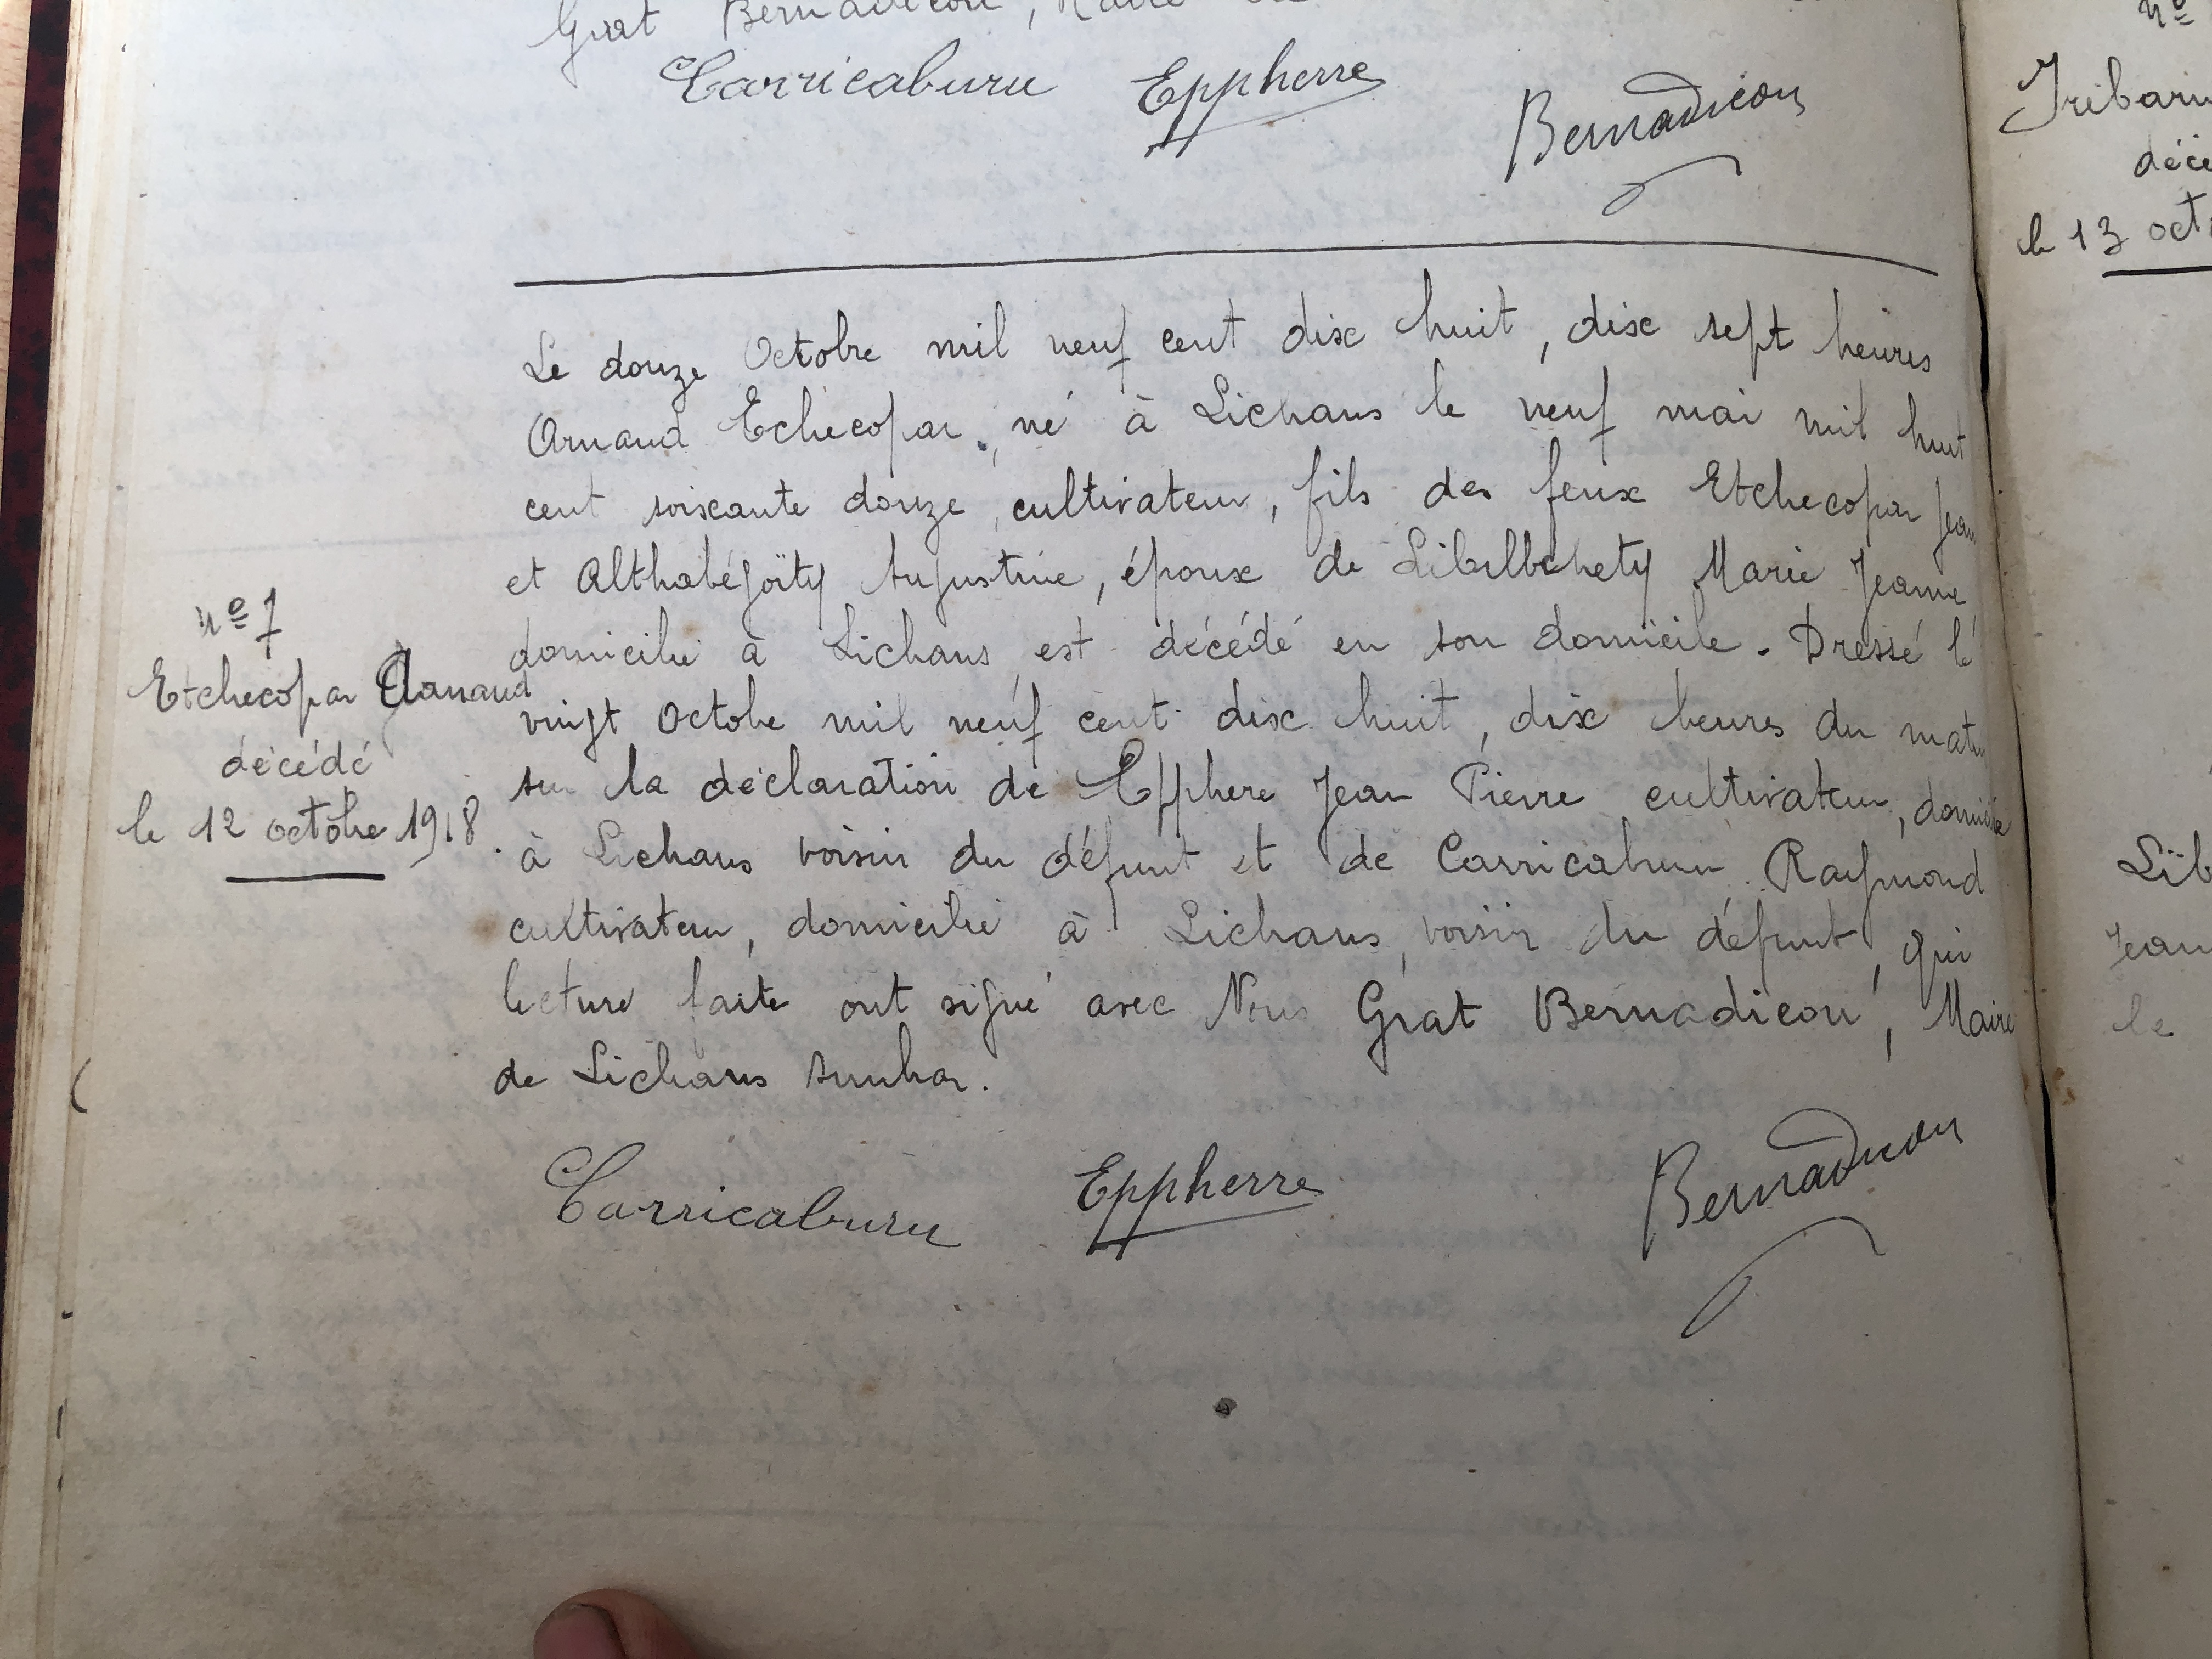 Grat Bernadicou, Maire de
Carricaburu Eppherre Bernadicou
Le douze Octobre mil neuf cent dix huit, dix sept heures
Arnaud Echecopar, né à Lichans le neuf mai mil huit
cent soixante douze, cultivateur, fils des feux Etchecopar Jean
et Althabégoïty Augustine, époux de Marie Jeanne
domicilié à Lichans, est décédé en son domicile. Dressé le
vingt Octobe mil neuf cent dix huit, dix heures du matin
sur la déclaration de Epphere Jean Pierre cultivateur, domicilié
à Lichans voisin du défunt et de Carricaburu Raymond
cultivateur, domicilié à Lichans, voisin du défunt, qui
lecture faite ont signé avec Nous Grat Bernadicou, Maire
de Lichans Sunhar.
Carricaburu Eppherre Bernadicou
nº 7
Etchecopar Arnaud
décédé
le 12 octobre 1918
nº
Iribarn
décé
le 13 oct
Lib
Jean
le